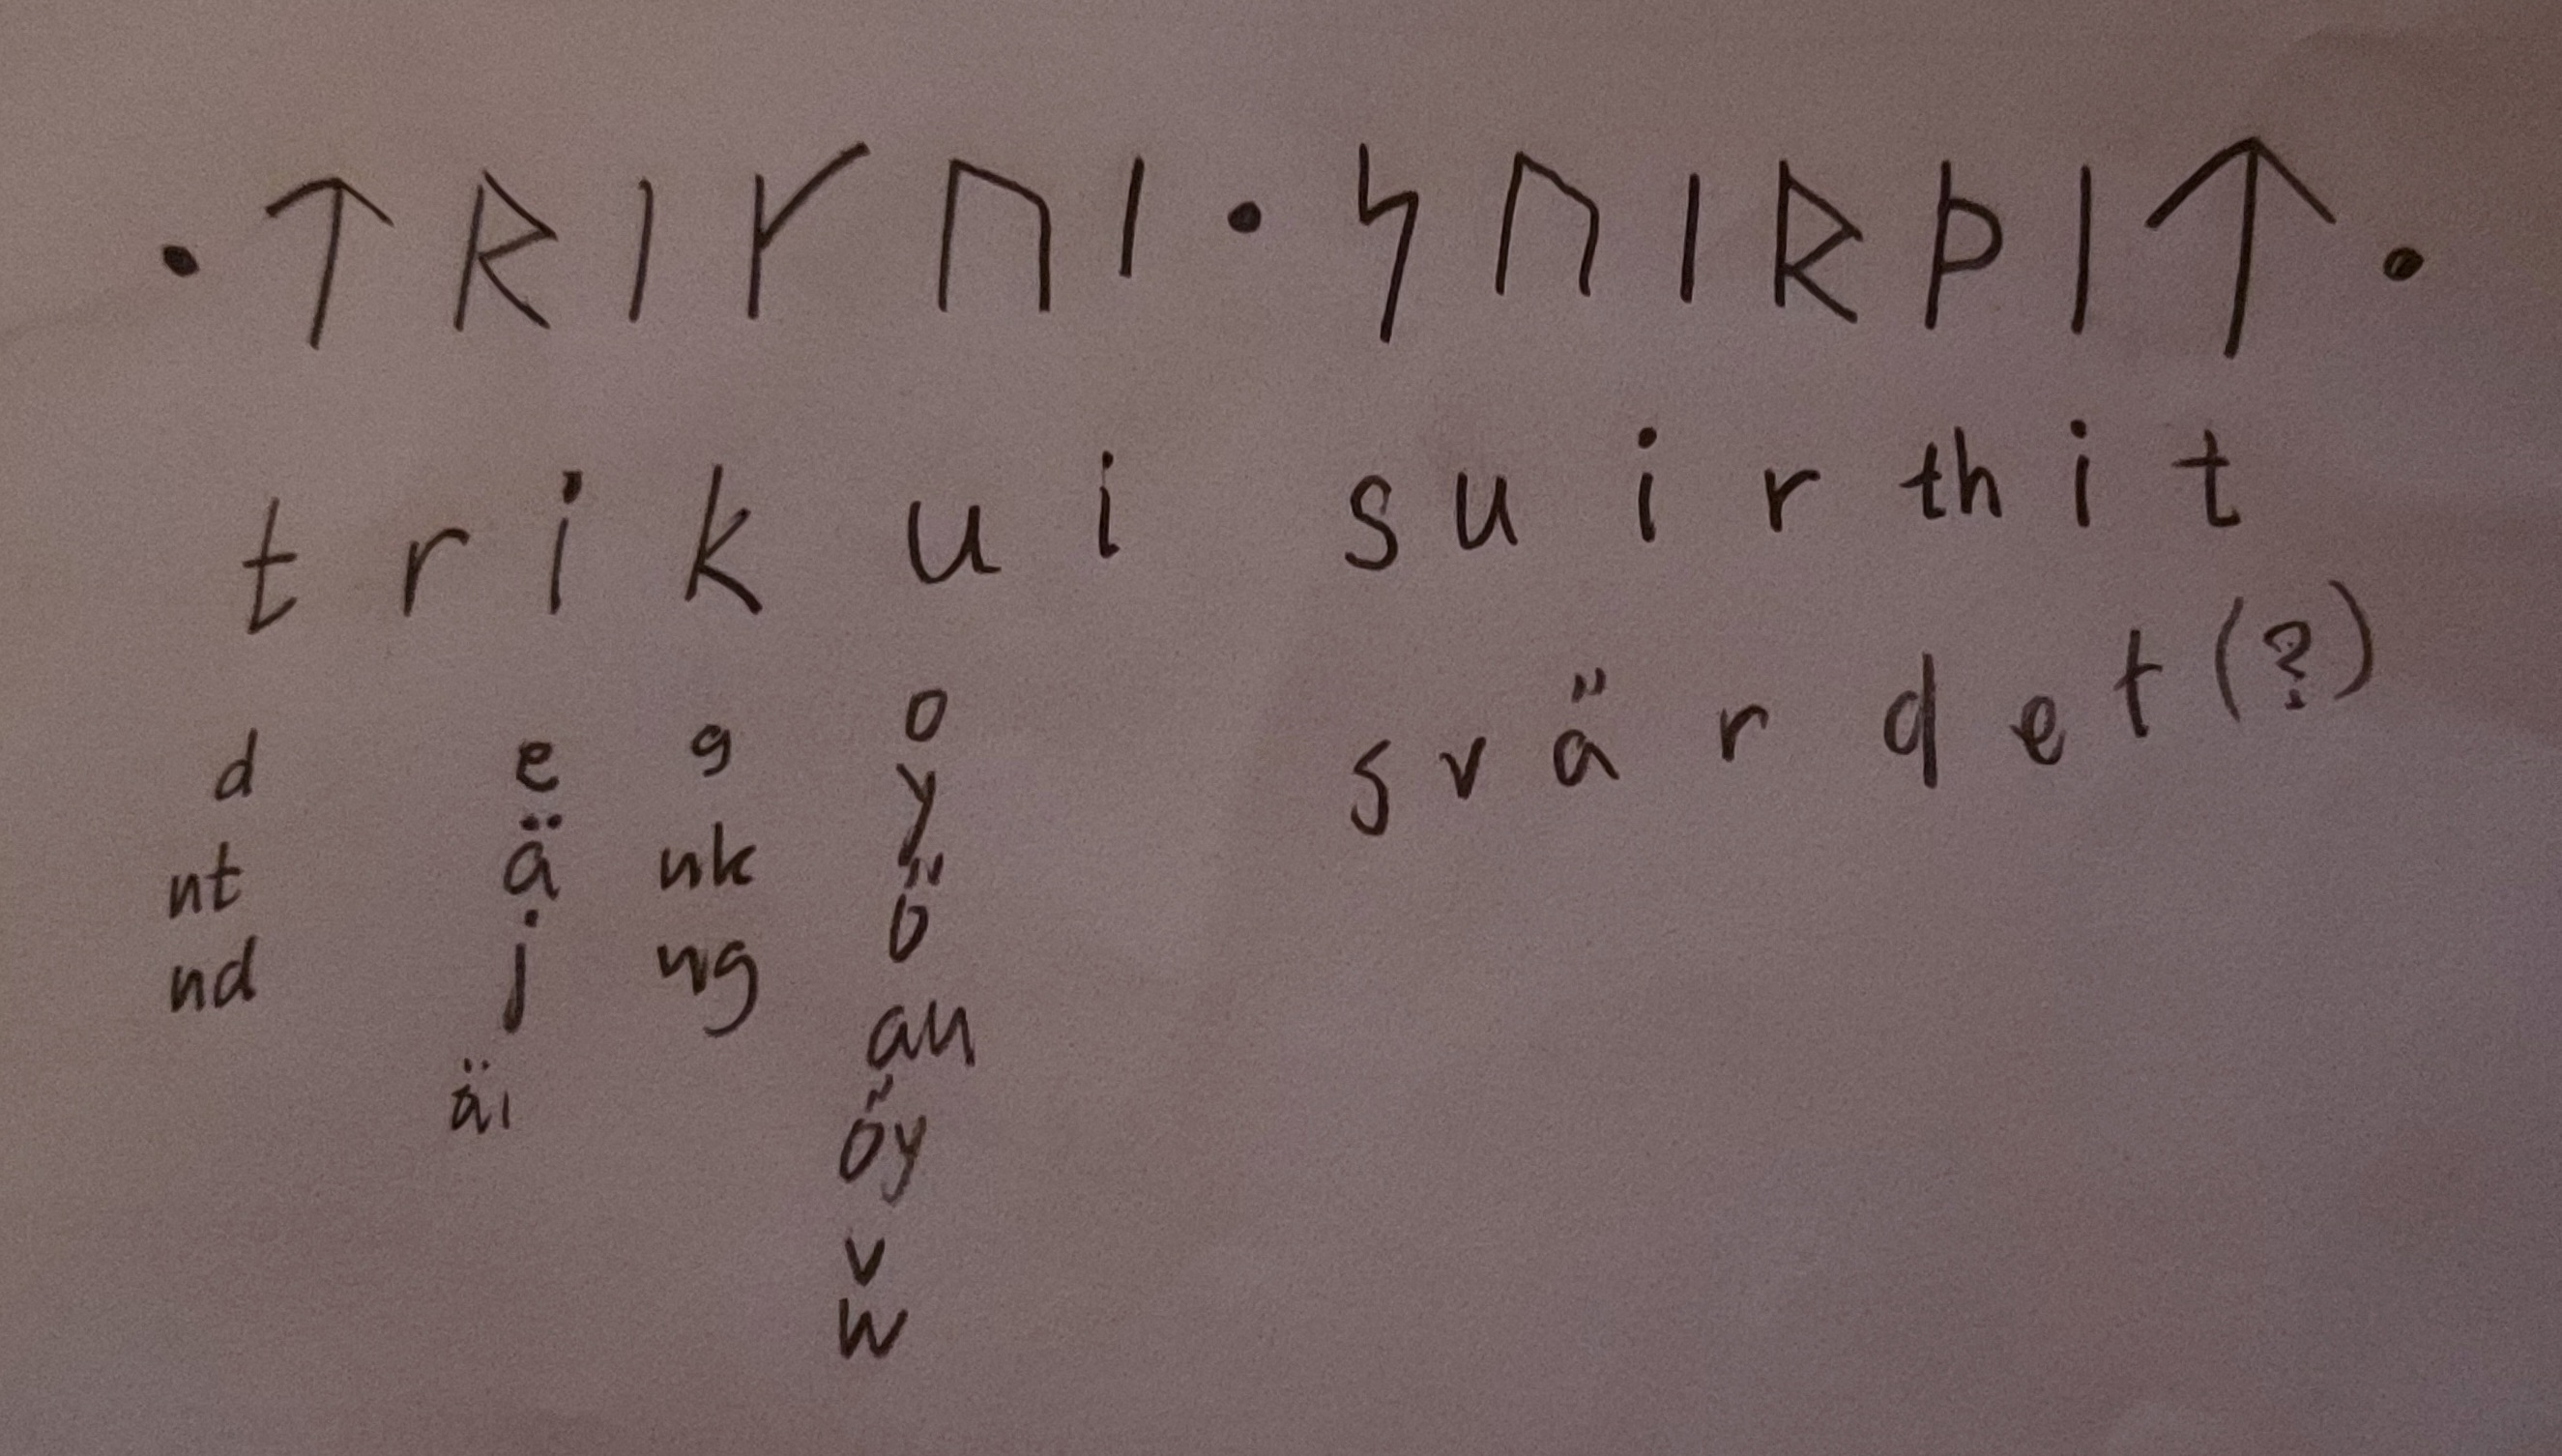 · ᛏ ᚱ ᛁ ᚴ ᚢ ᛁ · ᛋ ᚢ ᛁ ᚱ ᚦ ᛁ ᛏ ·
t r i k u i s u i r th i t
s v ä r d e t (?)
d e g o
nt ä nk y
nd j ng ö
äi au
öy
v
w